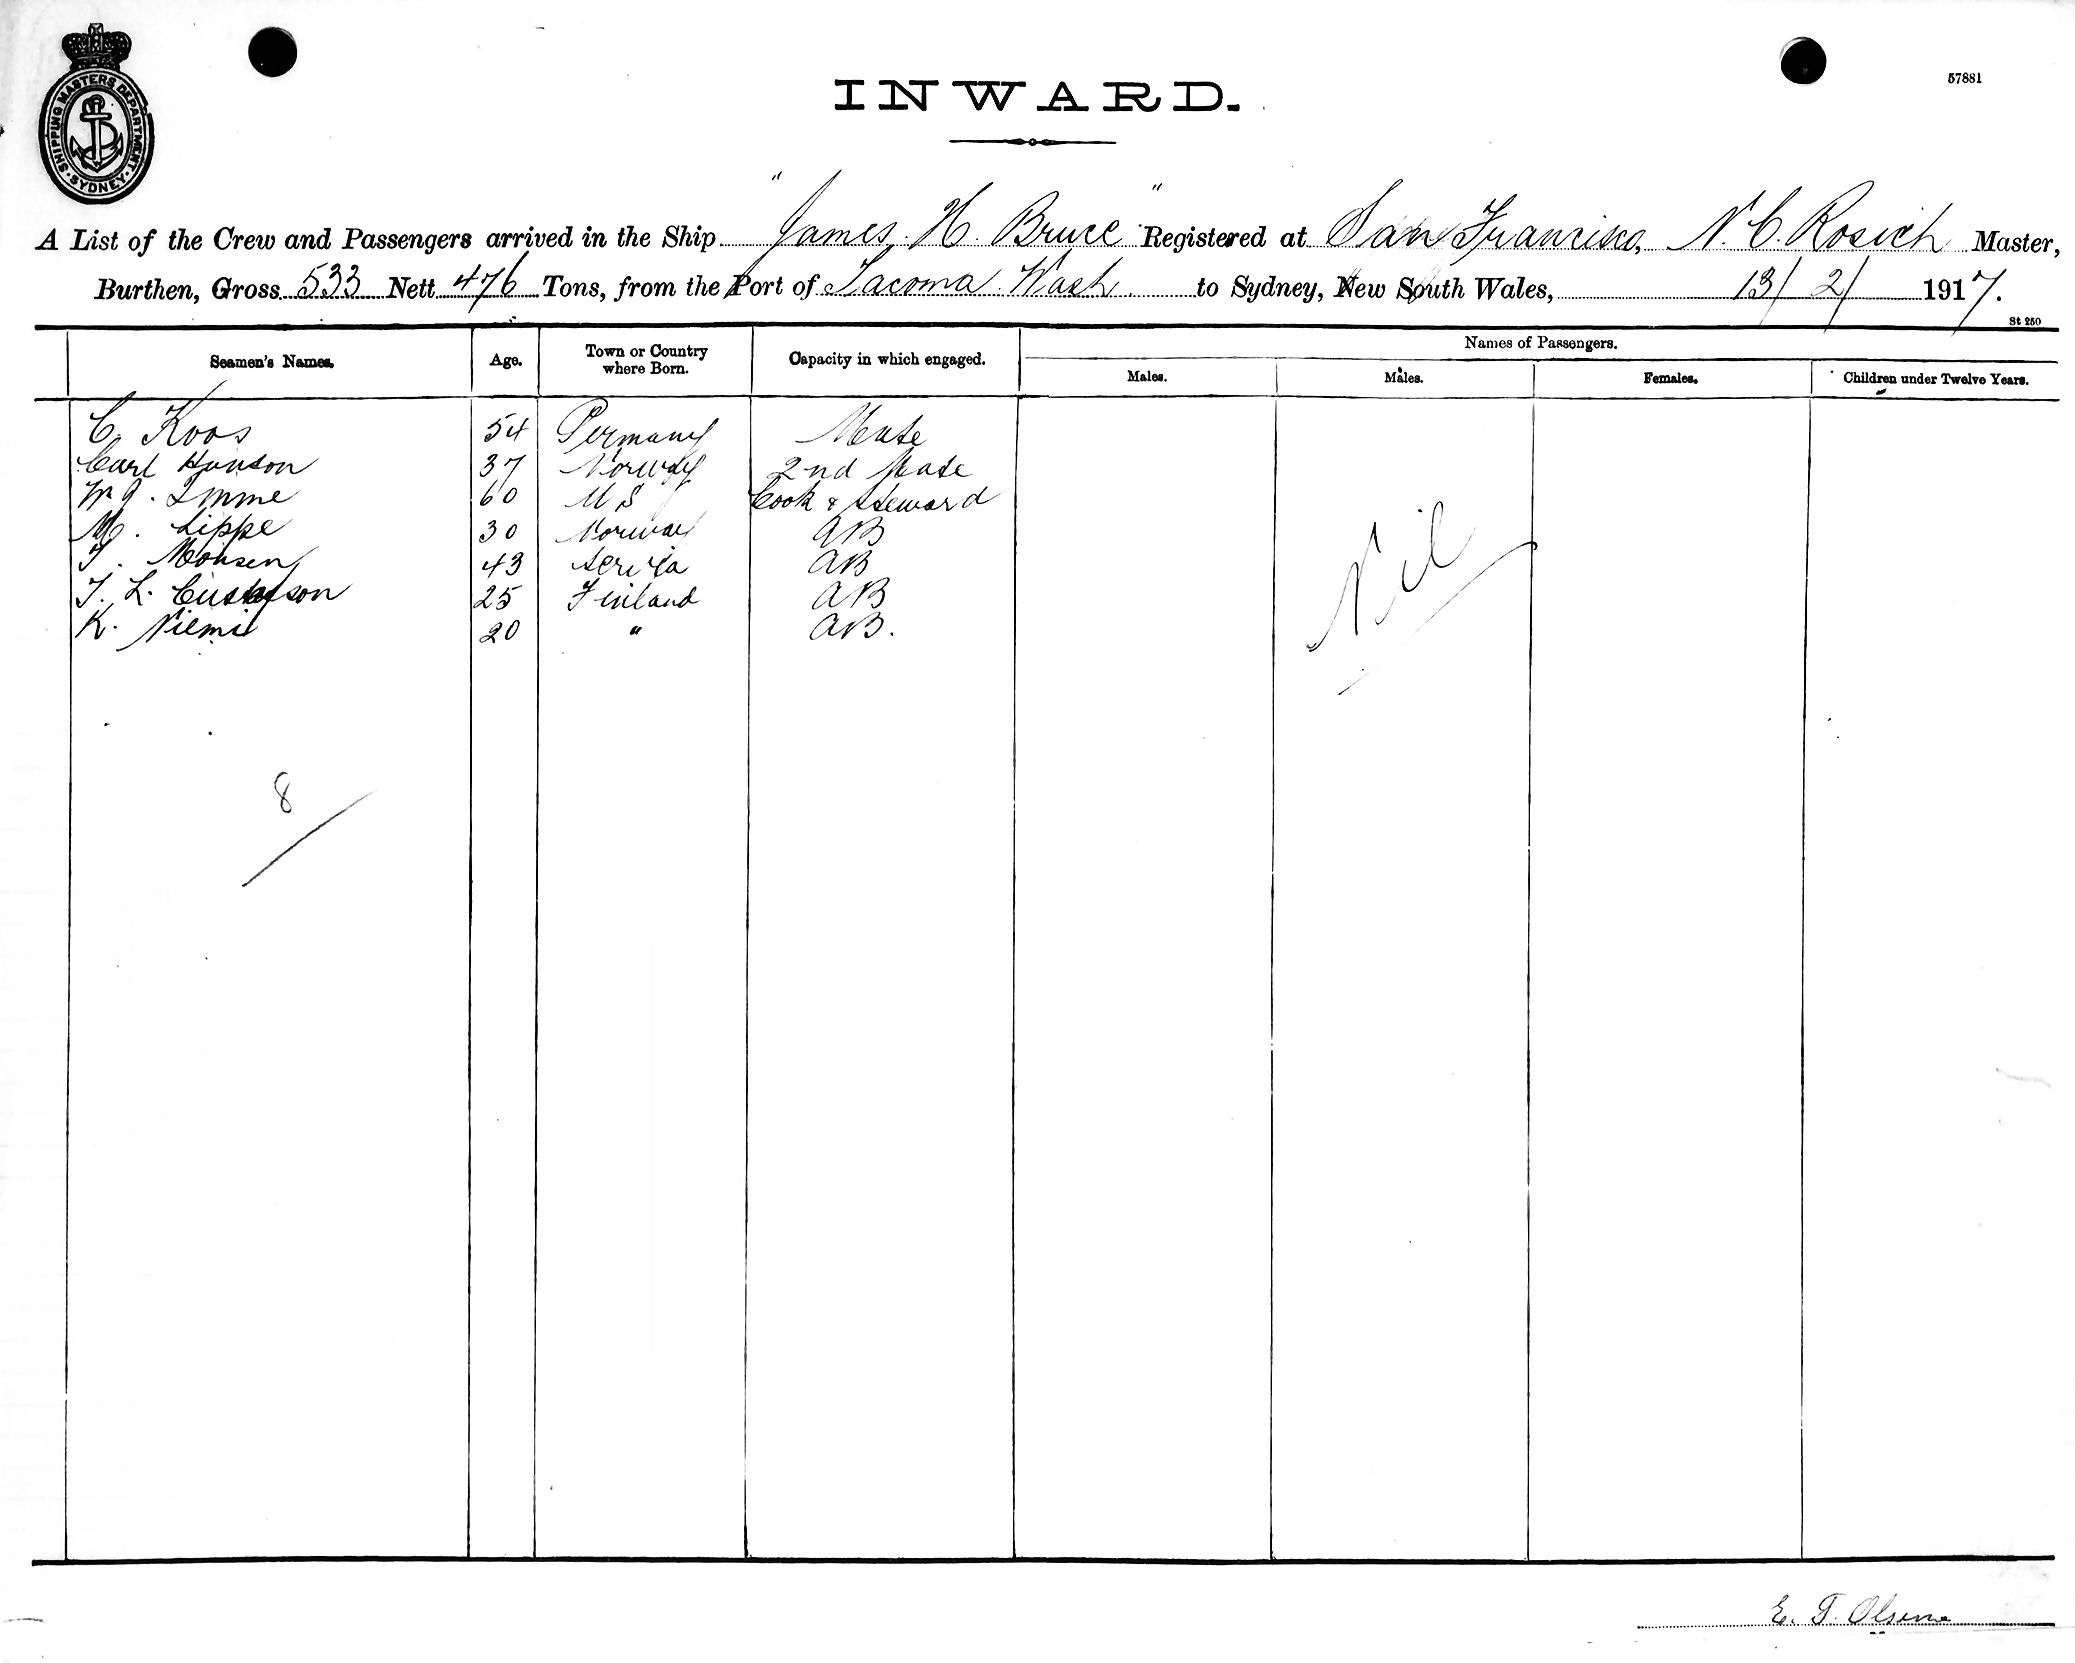 SHIPPING MASTERS DEPARTMENT · SYDNEY ·
57881
INWARD.
A List of the Crew and Passengers arrived in the Ship "James H. Bruce" Registered at San Francisco, N. C. Rosich Master,
Burthen, Gross 533 Nett 476 Tons, from the Port of Tacoma Wash. to Sydney, New South Wales, 13/2/1917.
St 250
Seamen's Names. Age. Town or Country where Born. Capacity in which engaged. Names of Passengers.
Males. Males. Females. Children under Twelve Years.
C. Koos 54 Germany Mate
Carl Hanson 37 Norway 2nd Mate
60 U S Cook & Steward
M. Lippe 30 Norway AB
T. Monsen 43 Servia AB
T. L. Gustafson 25 Finland AB
K. Niemi 20 " AB.
Nil
8
E. T. Olsen